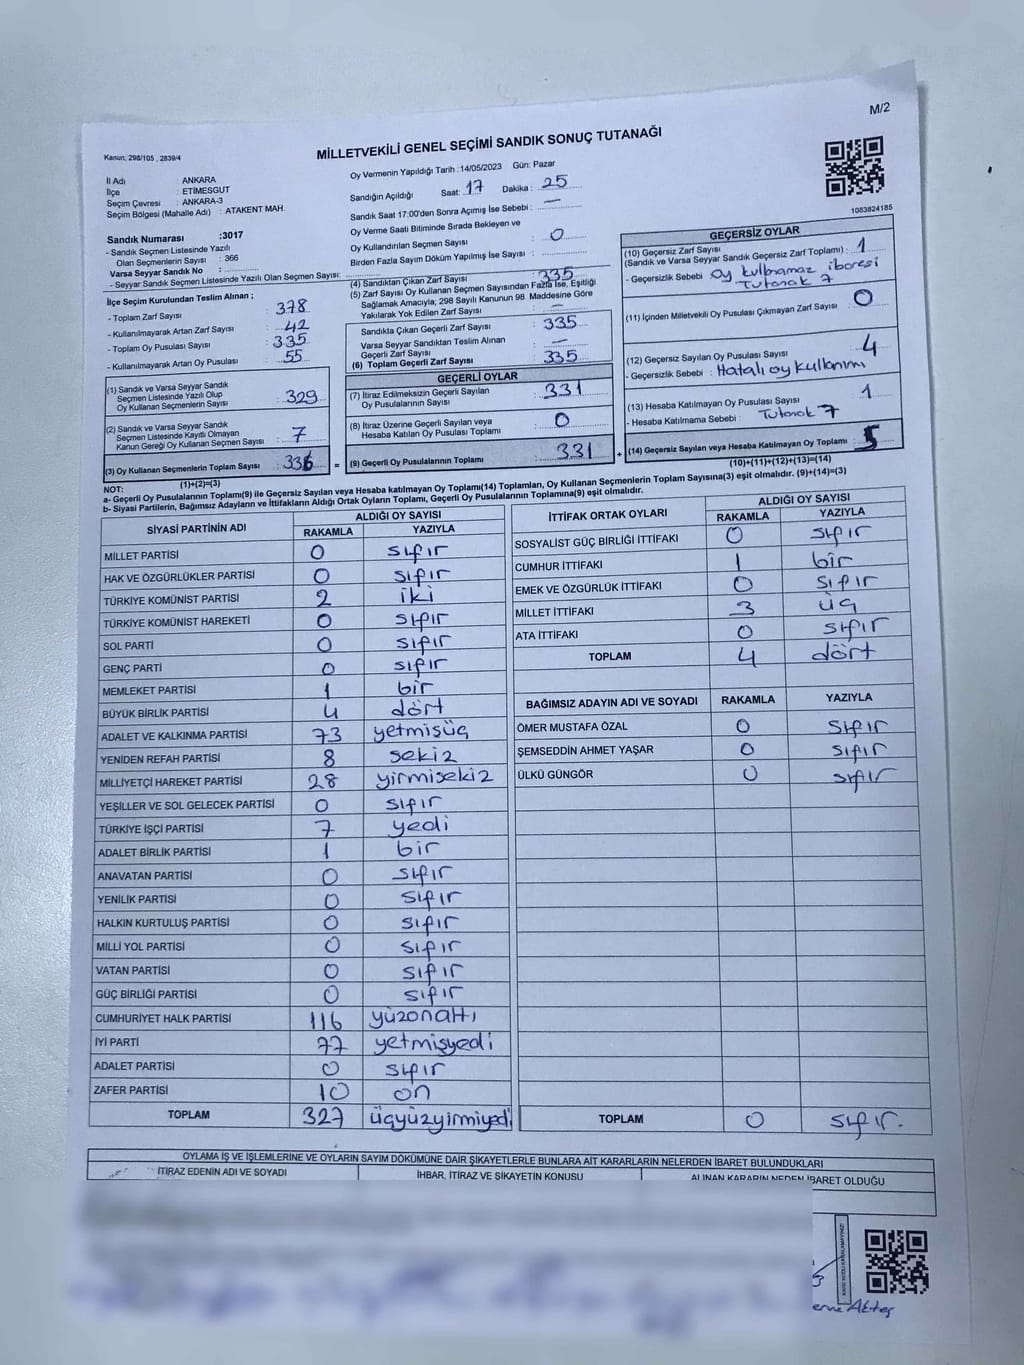 M/2
Kanun; 298/105 , 2839/4
MİLLETVEKİLİ GENEL SEÇİMİ SANDIK SONUÇ TUTANAĞI
İl Adı : ANKARA
İlçe : ETİMESGUT
Seçim Çevresi : ANKARA-3
Seçim Bölgesi (Mahalle Adı) : ATAKENT MAH.
Sandık Numarası :3017
- Sandık Seçmen Listesinde Yazılı
Olan Seçmenlerin Sayısı : 366
Varsa Seyyar Sandık No :
- Seyyar Sandık Seçmen Listesinde Yazılı Olan Seçmen Sayısı:
Oy Vermenin Yapıldığı Tarih :14/05/2023 Gün: Pazar
Sandığın Açıldığı Saat: 17 Dakika : 25
Sandık Saat 17:00'den Sonra Açımış İse Sebebi : —
Oy Verme Saati Bitiminde Sırada Bekleyen ve
Oy Kullandırılan Seçmen Sayısı : 0
Birden Fazla Sayım Döküm Yapılmış İse Sayısı :
1083824185
İlçe Seçim Kurulundan Teslim Alınan ;
- Toplam Zarf Sayısı : 378
- Kullanılmayarak Artan Zarf Sayısı : 42
- Toplam Oy Pusulası Sayısı : 335
- Kullanılmayarak Artan Oy Pusulası : 55
(1) Sandık ve Varsa Seyyar Sandık
Seçmen Listesinde Yazılı Olup
Oy Kullanan Seçmenlerin Sayısı : 329
(2) Sandık ve Varsa Seyyar Sandık
Seçmen Listesinde Kayıtlı Olmayan
Kanun Gereği Oy Kullanan Seçmen Sayısı : 7
(3) Oy Kullanan Seçmenlerin Toplam Sayısı : 336
(1)+(2)=(3)
(4) Sandıktan Çıkan Zarf Sayısı : 335
(5) Zarf Sayısı Oy Kullanan Seçmen Sayısından Fazla İse, Eşitliği
Sağlamak Amacıyla; 298 Sayılı Kanunun 98. Maddesine Göre
Yakılarak Yok Edilen Zarf Sayısı : —
Sandıkta Çıkan Geçerli Zarf Sayısı : 335
Varsa Seyyar Sandıktan Teslim Alınan
Geçerli Zarf Sayısı : —
(6) Toplam Geçerli Zarf Sayısı : 335
GEÇERLİ OYLAR
(7) İtiraz Edilmeksizin Geçerli Sayılan
Oy Pusulalarının Sayısı : 331
(8) İtiraz Üzerine Geçerli Sayılan veya
Hesaba Katılan Oy Pusulası Toplamı : 0
= (9) Geçerli Oy Pusulalarının Toplamı : 331 +
GEÇERSİZ OYLAR
(10) Geçersiz Zarf Sayısı
(Sandık ve Varsa Seyyar Sandık Geçersiz Zarf Toplamı) : 1
- Geçersizlik Sebebi : oy kullanamaz ibaresi
Tutanak 7
(11) İçinden Milletvekili Oy Pusulası Çıkmayan Zarf Sayısı : 0
(12) Geçersiz Sayılan Oy Pusulası Sayısı : 4
- Geçersizlik Sebebi : Hatalı oy kullanımı
(13) Hesaba Katılmayan Oy Pusulası Sayısı : 1
- Hesaba Katılmama Sebebi : Tutanak 7
(14) Geçersiz Sayılan veya Hesaba Katılmayan Oy Toplamı : 5
(10)+(11)+(12)+(13)=(14)
NOT:
a- Geçerli Oy Pusulalarının Toplamı(9) ile Geçersiz Sayılan veya Hesaba katılmayan Oy Toplamı(14) Toplamları, Oy Kullanan Seçmenlerin Toplam Sayısına(3) eşit olmalıdır. (9)+(14)=(3)
b- Siyasi Partilerin, Bağımsız Adayların ve İttifakların Aldığı Ortak Oyların Toplamı, Geçerli Oy Pusulalarının Toplamına(9) eşit olmalıdır.
SİYASİ PARTİNİN ADI ALDIĞI OY SAYISI
RAKAMLA YAZIYLA
MİLLET PARTİSİ 0 sıfır
HAK VE ÖZGÜRLÜKLER PARTİSİ 0 sıfır
TÜRKİYE KOMÜNİST PARTİSİ 2 iki
TÜRKİYE KOMÜNİST HAREKETİ 0 sıfır
SOL PARTİ 0 sıfır
GENÇ PARTİ 0 sıfır
MEMLEKET PARTİSİ 1 bir
BÜYÜK BİRLİK PARTİSİ 4 dört
ADALET VE KALKINMA PARTİSİ 73 yetmişüç
YENİDEN REFAH PARTİSİ 8 sekiz
MİLLİYETÇİ HAREKET PARTİSİ 28 yirmisekiz
YEŞİLLER VE SOL GELECEK PARTİSİ 0 sıfır
TÜRKİYE İŞÇİ PARTİSİ 7 yedi
ADALET BİRLİK PARTİSİ 1 bir
ANAVATAN PARTİSİ 0 sıfır
YENİLİK PARTİSİ 0 sıfır
HALKIN KURTULUŞ PARTİSİ 0 sıfır
MİLLİ YOL PARTİSİ 0 sıfır
VATAN PARTİSİ 0 sıfır
GÜÇ BİRLİĞİ PARTİSİ 0 sıfır
CUMHURİYET HALK PARTİSİ 116 yüzonaltı
İYİ PARTİ 77 yetmişyedi
ADALET PARTİSİ 0 sıfır
ZAFER PARTİSİ 10 on
TOPLAM 327 üçyüzyirmiyedi
İTTİFAK ORTAK OYLARI ALDIĞI OY SAYISI
RAKAMLA YAZIYLA
SOSYALİST GÜÇ BİRLİĞİ İTTİFAKI 0 sıfır
CUMHUR İTTİFAKI 1 bir
EMEK VE ÖZGÜRLÜK İTTİFAKI 0 sıfır
MİLLET İTTİFAKI 3 üç
ATA İTTİFAKI 0 sıfır
TOPLAM 4 dört
BAĞIMSIZ ADAYIN ADI VE SOYADI RAKAMLA YAZIYLA
ÖMER MUSTAFA ÖZAL 0 sıfır
ŞEMSEDDİN AHMET YAŞAR 0 sıfır
ÜLKÜ GÜNGÖR 0 sıfır
TOPLAM 0 sıfır.
OYLAMA İŞ VE İŞLEMLERİNE VE OYLARIN SAYIM DÖKÜMÜNE DAİR ŞİKAYETLERLE BUNLARA AİT KARARLARIN NELERDEN İBARET BULUNDUKLARI
İTİRAZ EDENİN ADI VE SOYADI İHBAR, İTİRAZ VE ŞİKAYETİN KONUSU ALINAN KARARIN NEDEN İBARET OLDUĞU
Aktaş